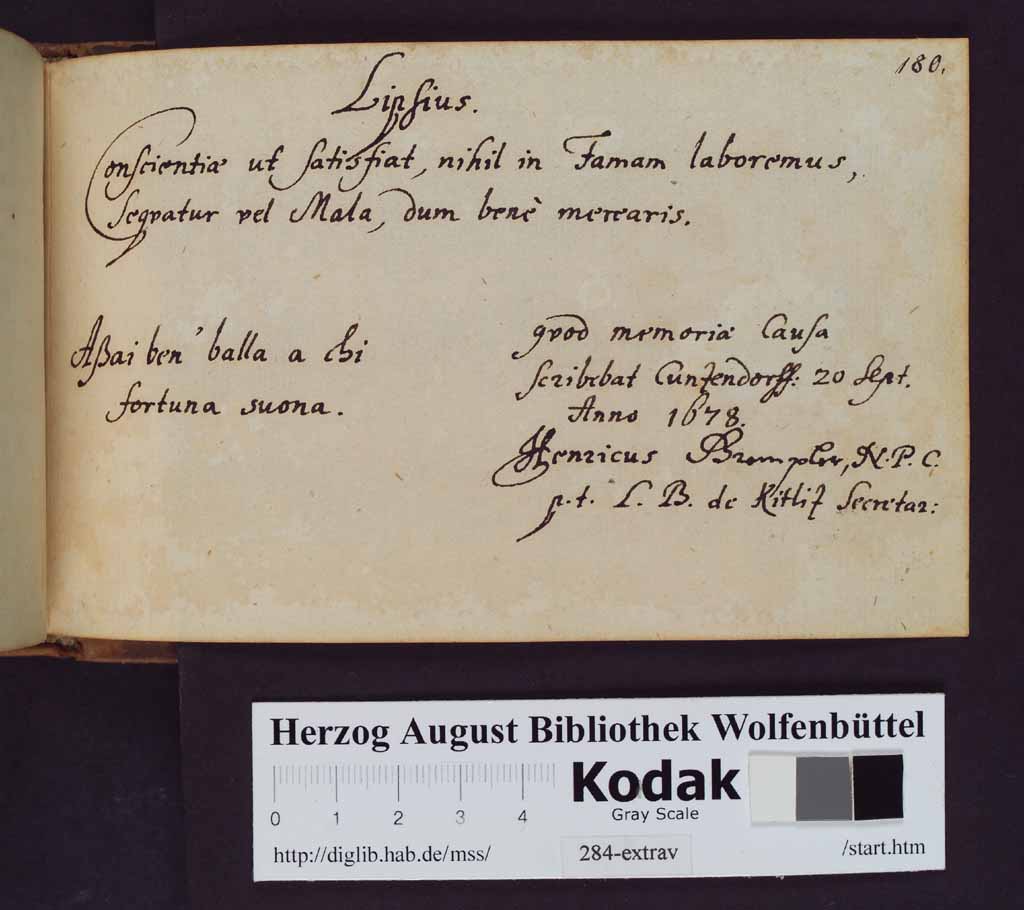 180.
Lipsius.
Conscientiæ ut satisfiat, nihil in Famam laboremus,
seqvatur vel Mala, dum benè merearis.
Aßai ben' balla a chi
fortuna suona.
qvod memoriæ Causa
scribebat Cuntzendorff: 20 Sept.
Anno 1678.
Henricus Brempler, N. P. C.
p. t. L. B. de Kitlitz Secretar:
Herzog August Bibliothek Wolfenbüttel
0 1 2 3 4
Kodak
Gray Scale
http://diglib.hab.de/mss/ 284-extrav /start.htm